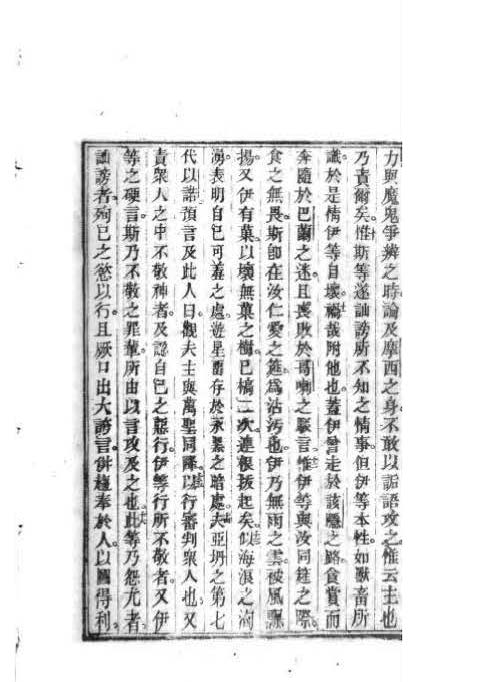 力與魔鬼爭辨之時論及摩西之身不敢以詬語攻之惟云主也
乃責爾矣惟斯等遂訕謗所不知之情事但伊等本性如獸畜所
識於是情伊等自壞禍哉附他也蓋伊曾走於該隱之路貪賞而
奔隨於巴蘭之迷且喪敗於哥喇之駁言惟伊等與汝同筵之際
食之無畏斯卽在汝仁愛之筵爲沾污也伊乃無雨之雲被風飄
揚又伊有菓以壞無菓之樹已槁二次連根拔起矣似海浪之洶
湧表明自已可羞之處遊星爵存於永暴之暗處夫亞坍之第七
代以諾預言及此人曰觀夫主與萬聖同降以行審判衆人也又
責衆人之中不敬神者及認自已之惡行伊等行所不敬者又伊
等之硬言斯乃不敬之罪輩所由以言攻及之也此等乃怨尤者
訕謗者殉已之慾以行且厥口出大謗言倂趨奉於人以圖得利